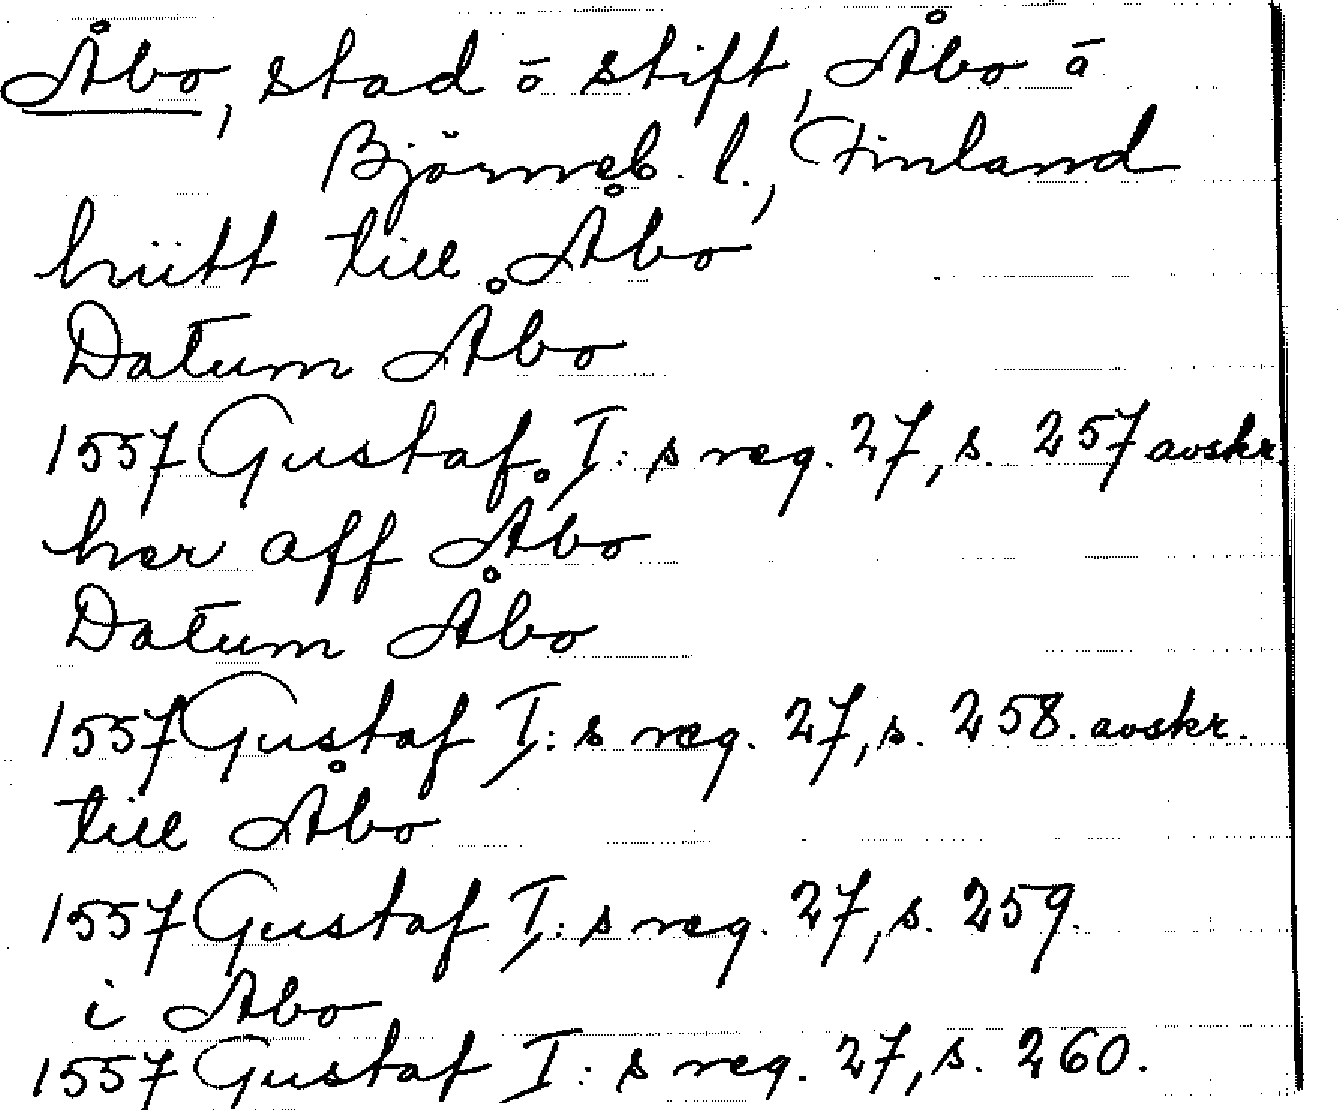 Åbo, stad ō stift, Åbo ā
Björneb. l., Finland
hiitt till Åbo
Datum Åbo
1557 Gustaf I:s reg. 27, s. 257 avskr.
her aff Åbo
Datum Åbo
1557 Gustaf I:s reg. 27, s. 258. avskr.
till Åbo
1557 Gustaf I:s reg. 27, s. 259.
i Åbo
1557 Gustaf I:s reg. 27, s. 260.